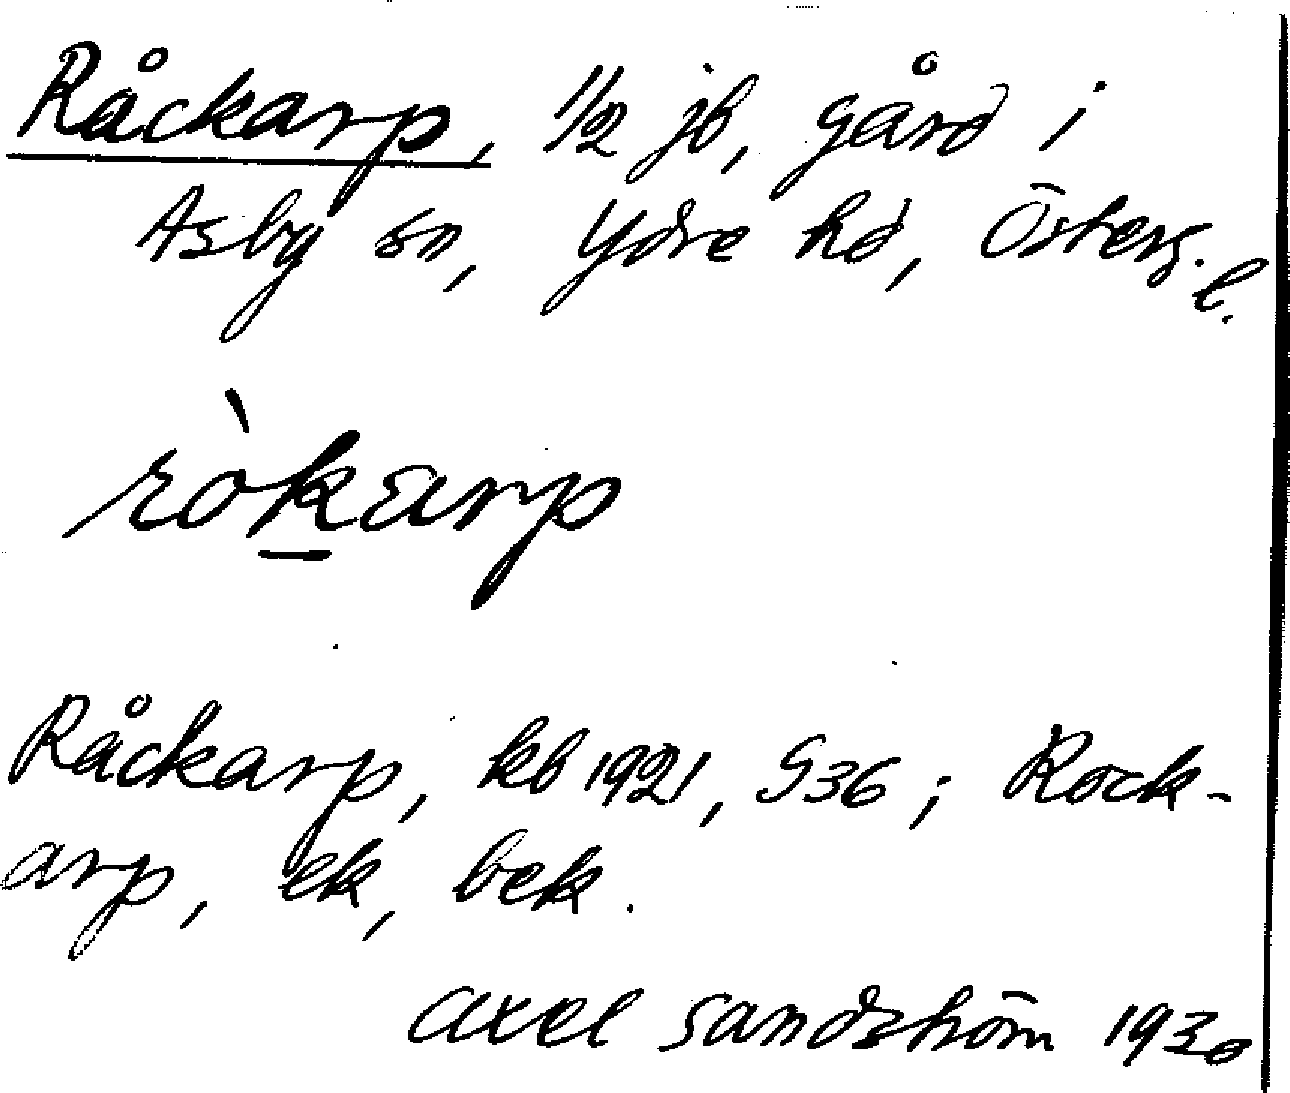 Råckarp, 1/2 jb, gård i
Asby sn, Ydre hd, Österg.l.
ròkarp
Råckarp, kb 1921, S36; Rock-
arp, ek, bek.
Axel Sandström 1930